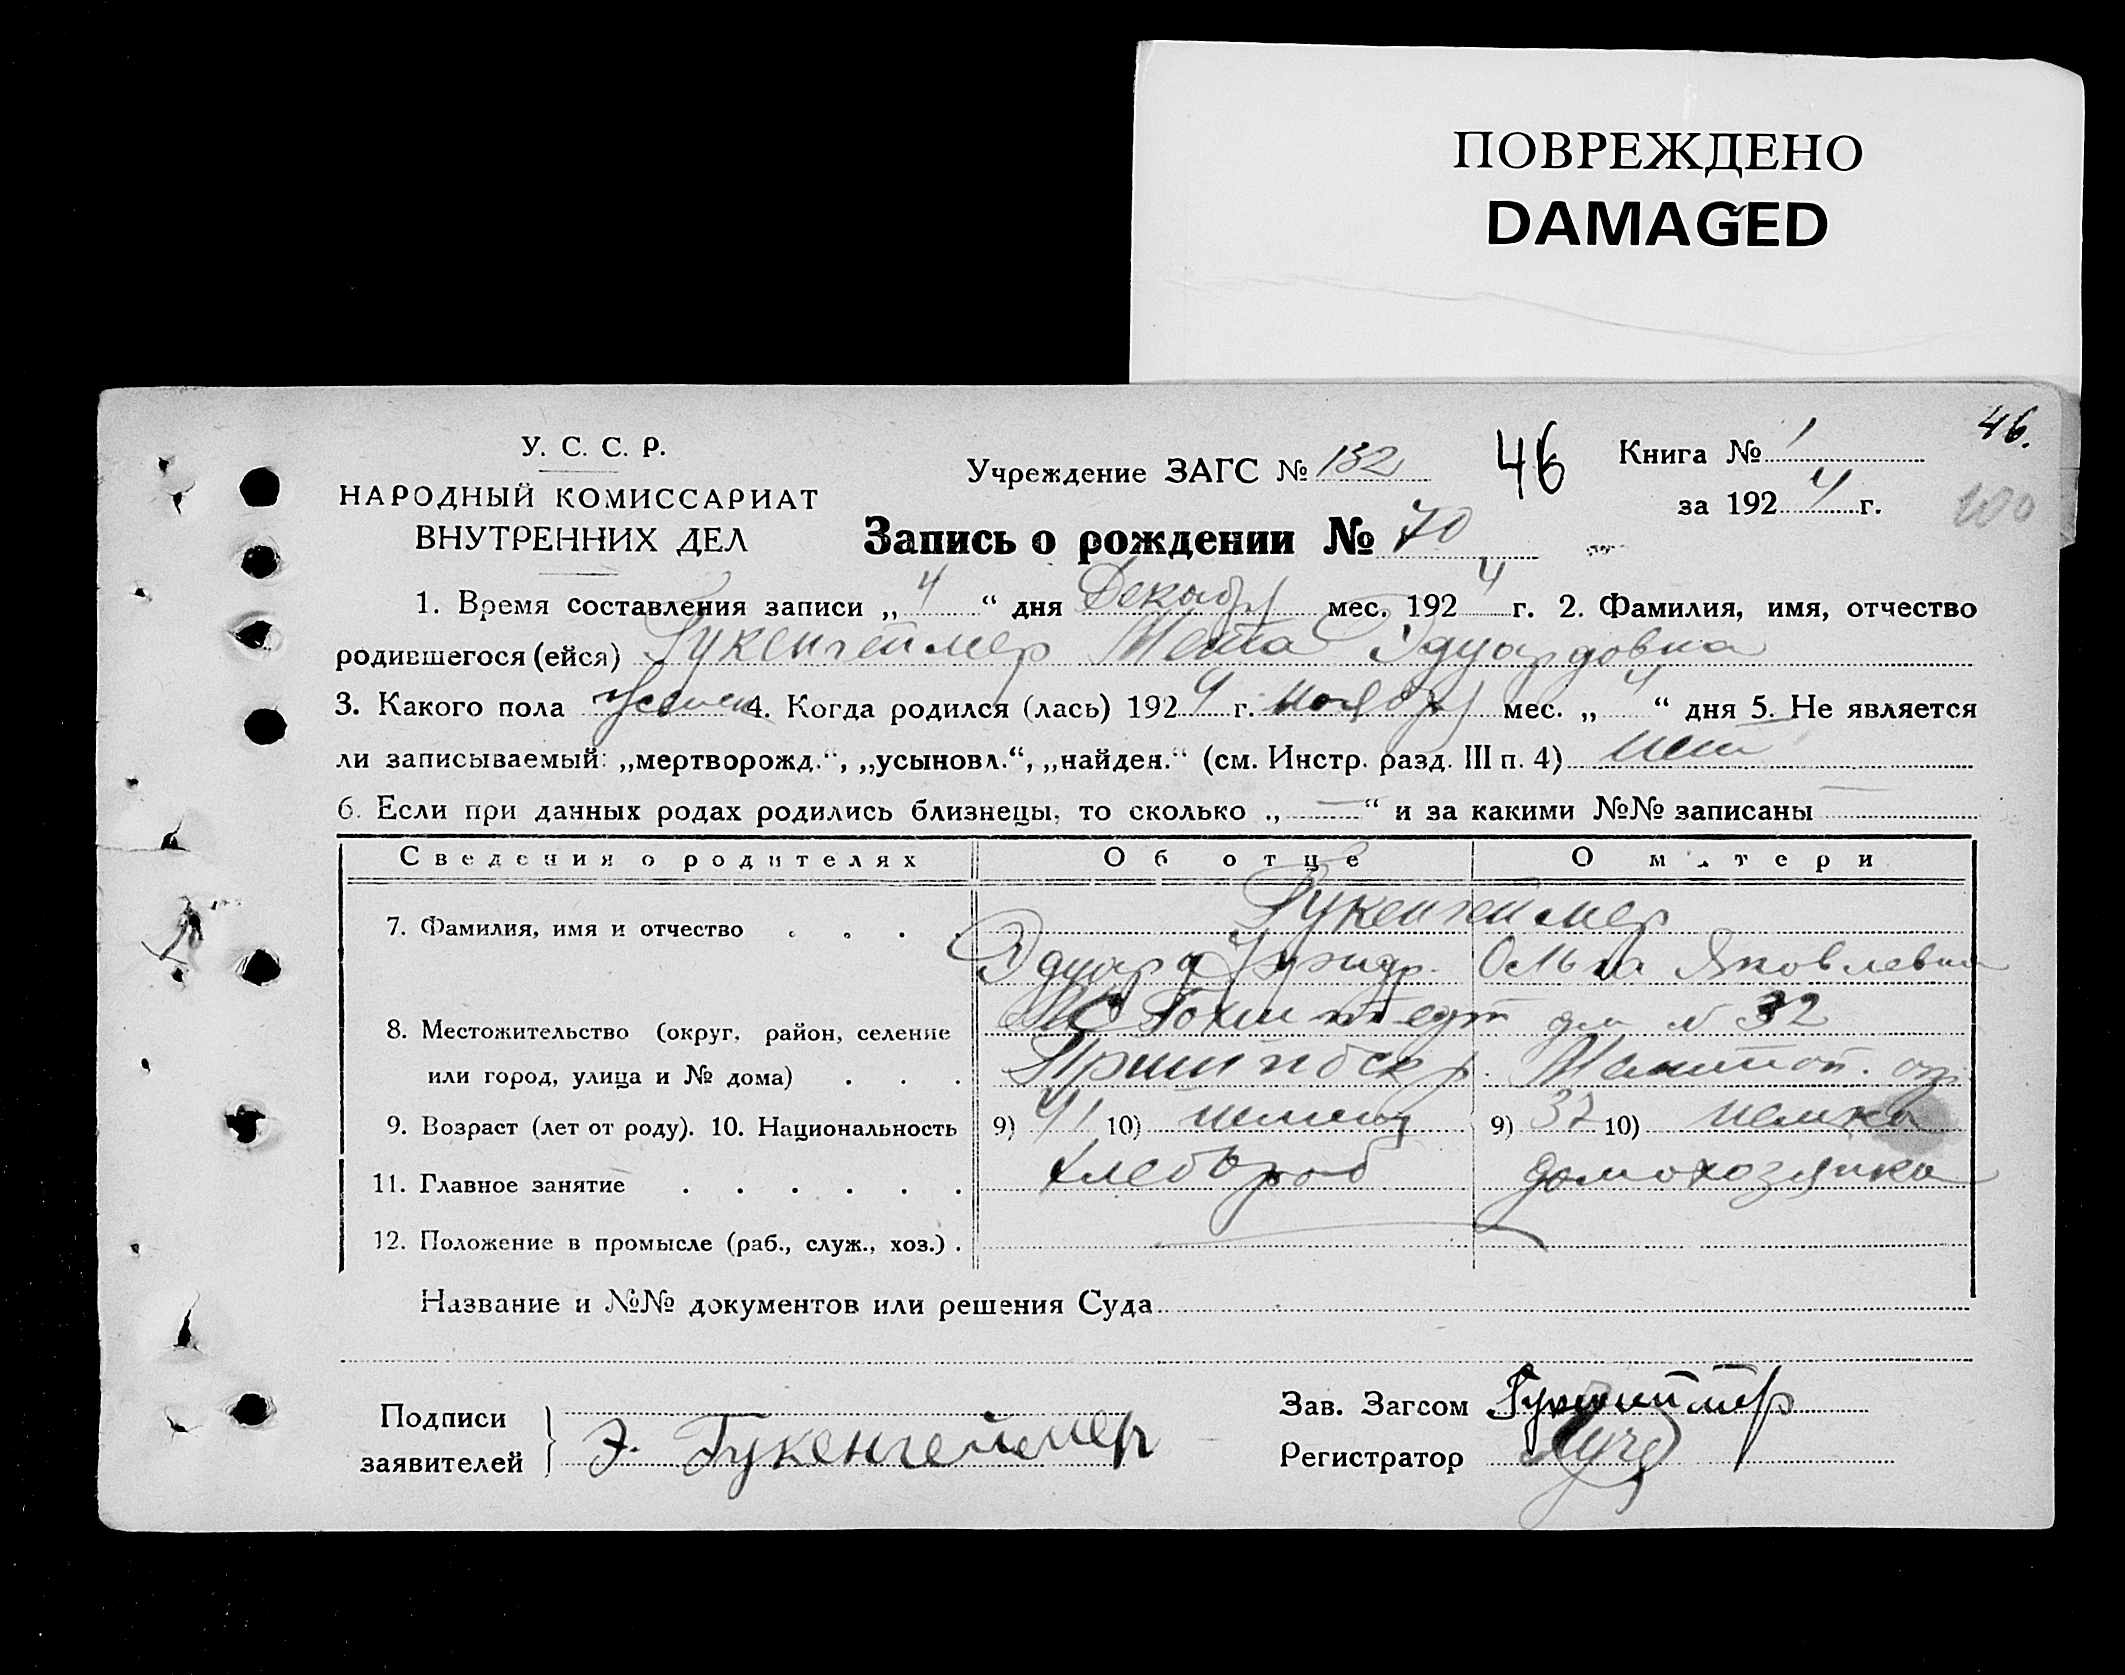 ПОВРЕЖДЕНО
DAMAGED
46.
У. С. С. Р.
НАРОДНЫЙ КОМИССАРИАТ
ВНУТРЕННИХ ДЕЛ
Учреждение ЗАГС № 132
46
Книга № 1
за 1924 г.
100
Запись о рождении № 70
1. Время составления записи „4“ дня Декабря мес. 1924 г. 2. Фамилия, имя, отчество
родившегося (ейся) Гукенгеймер Мета Эдуардовна
3. Какого пола женск 4. Когда родился (лась) 1924 г. Ноября мес. „4“ дня 5. Не является
ли записываемый: „мертворожд.“, „усыновл.“, „найден.“ (см. Инстр. разд. III п. 4) нет
6. Если при данных родах родились близнецы, то сколько „—“ и за какими №№ записаны —
Сведения о родителях Об отце О матери
7. Фамилия, имя и отчество . . . . Гукенгеймер
Эдуард Фридр. Ольга Яковлевна
8. Местожительство (округ, район, селение Гохштедт дм № 32
или город, улица и № дома) . . . Пришибск р. Мелитоп. окр.
9. Возраст (лет от роду). 10. Национальность 9) 41 10) немец 9) 37 10) немка
11. Главное занятие . . . . . . хлебороб домохозяйка
12. Положение в промысле (раб., служ., хоз.) .
Название и №№ документов или решения Суда
Подписи
заявителей } Э. Гукенгеймер
Зав. Загсом Гукенгеймер
Регистратор